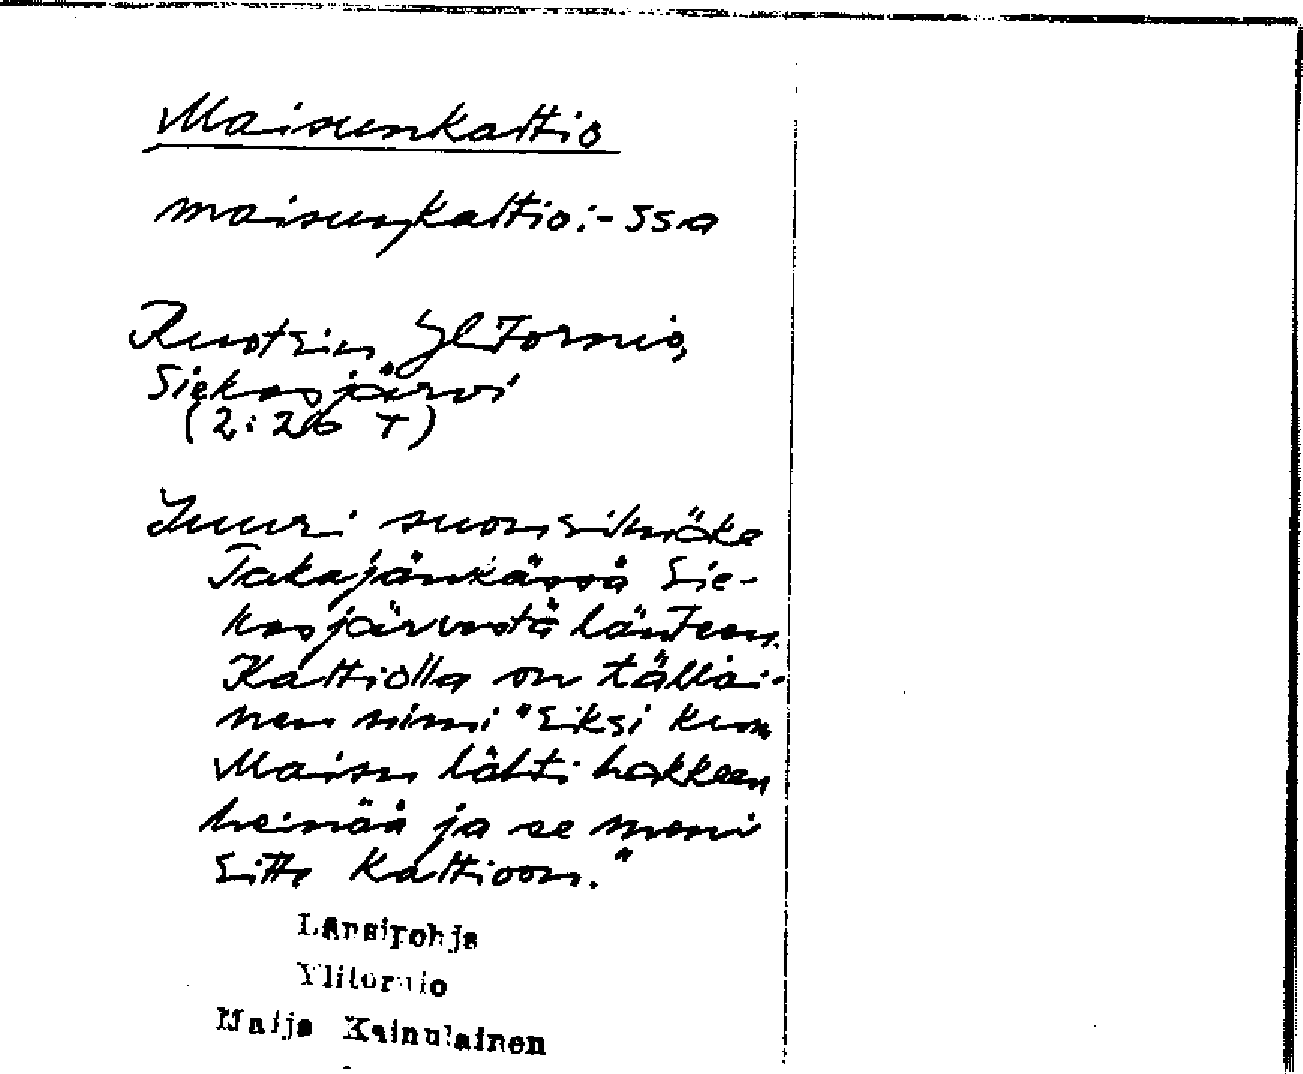 Maisunkaltio
maisuŋkaltio:-ssa
Ruotsin Yl Tornio,
Siekasjärvi
(2:26 T)
Suuri suonsilmäke
Takajänkässä Sie-
kasjärvestä länteen.
Kaltiolla on tällai-
nen nimi "siksi kun
Maisu lähti hakkeen
heinää ja se meni
sitte kaltioon."
Länsipohja
Ylitornio
Maija Kainulainen